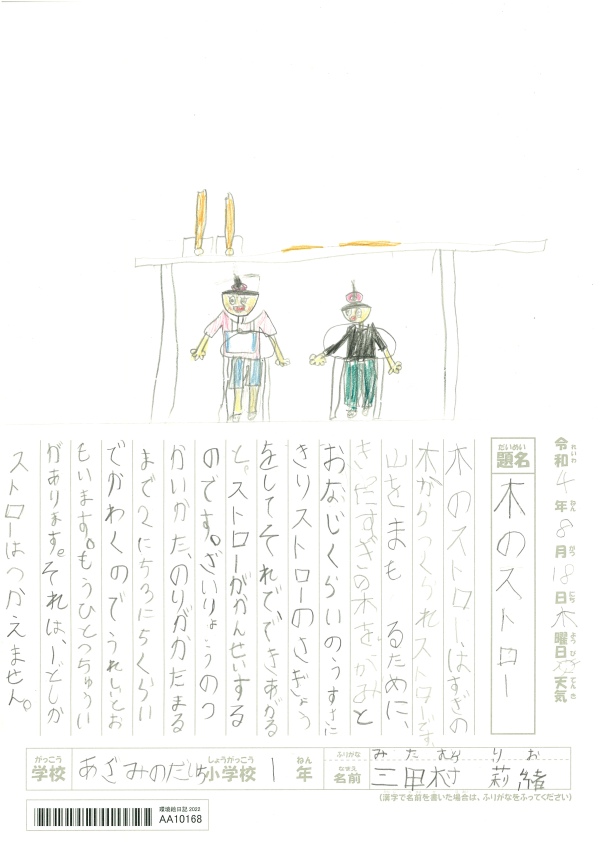 令和4年8月18日木曜日 天気
れいわ ねん がつ にち ようび てんき
だいめい
題名
木のストロー
木のストローはすぎの
木からつくられストローです
山をまもるために、
の木を と
おなじくらいのうすさに
きりストローのさぎょう
をしてそれで、できあがる
と、ストローがかんせいする
のです。ざいりょうの
かいかた、のりがかたまる
まで2にちろにちくらい
でかわくのでうれしいとお
もいます。もうひとつちゅうい
があります。それは、1どしか
ストローはつかえません。
がっこう しょうがっこう ねん
学校 あざみのだい小学校 1年
ふりがな みたむら りお
なまえ
名前 三田村 莉緒
(漢字で名前を書いた場合は、ふりがなをふってください)
環境絵日記 2022
AA10168